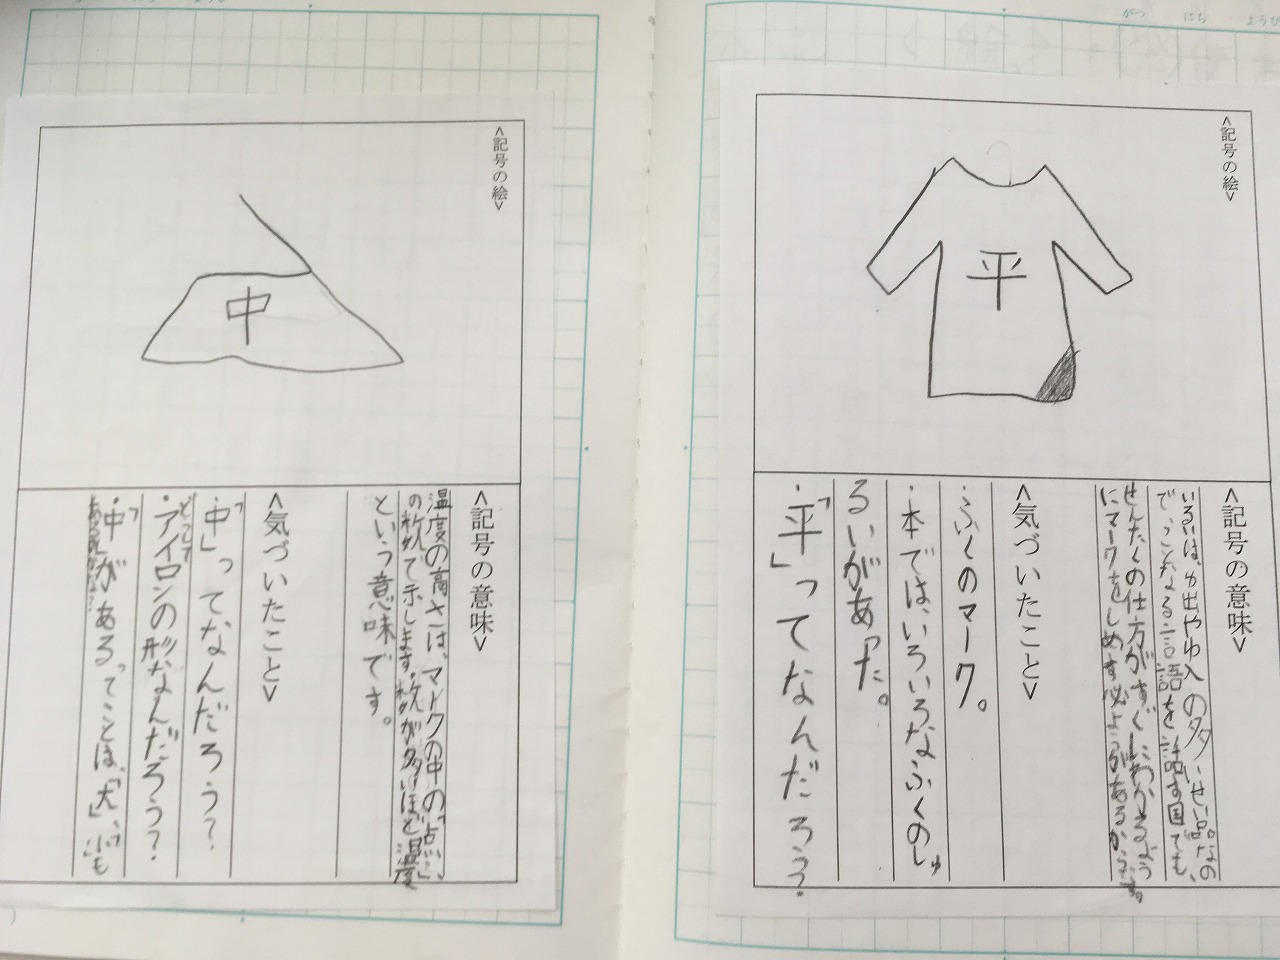 がつ にち ようび
<記号の絵>
平
<記号の意味>
いるいは、ゆ出やゆ入の多いせい品なの
で、ことなる言語を話す国でも、
せんたくの仕方がすぐにわかるよう
にマークをしめす必ようがあるからです。
<気づいたこと>
・ふくのマーク。
・本ではいろいろなふくのしゅ
るいがあった。
・「平」ってなんだろう?
<記号の絵>
中
<記号の意味>
温度の高さは、マークの中の「点」
の数で示します。数が多いほど温度
という意味です。
<気づいたこと>
・「中」ってなんだろう?
どうして
・アイロンの形なんだろう?
・「中」があるってことは、「大」「小」も